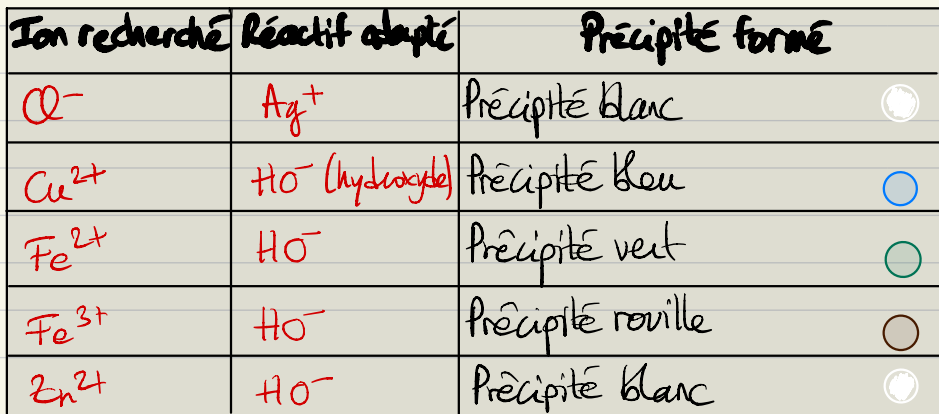 Ion recherché Réactif adapté Précipité formé
Cl⁻ Ag⁺ Précipité blanc
Cu²⁺ HO⁻ (hydroxyde) Précipité bleu
Fe²⁺ HO⁻ Précipité vert
Fe³⁺ HO⁻ Précipité rouille
Zn²⁺ HO⁻ Précipité blanc